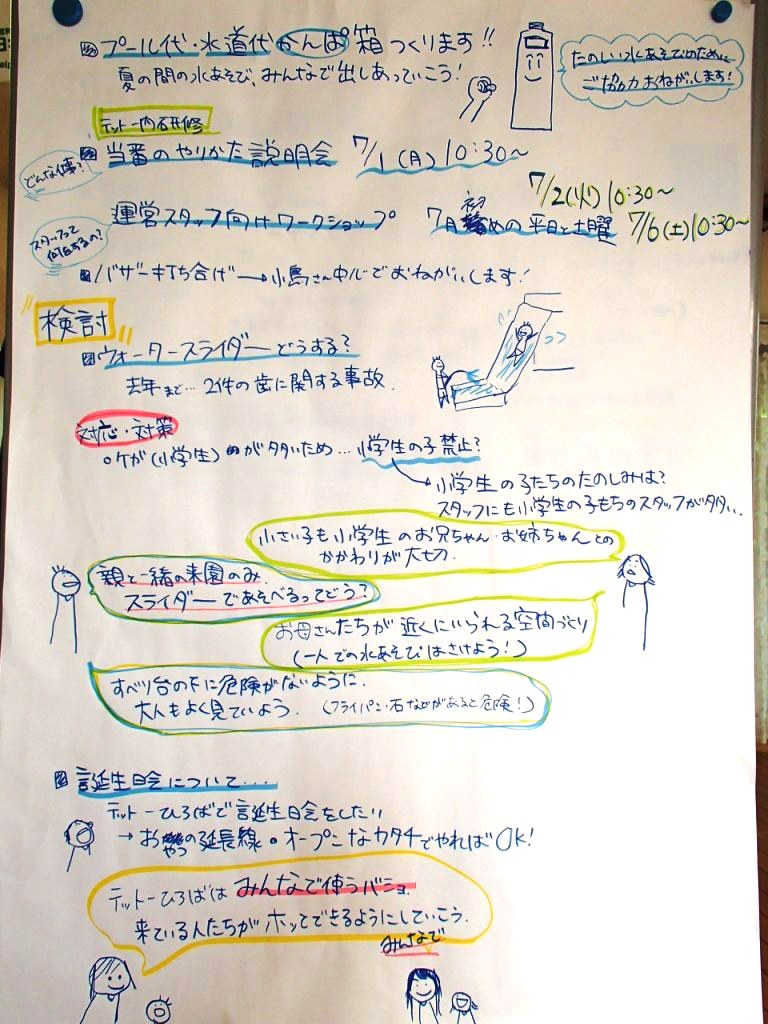 プール代・水道代かんぱ箱つくります!!
夏の間の水あそび、みんなで出しあっていこう!
たのしい水あそびのために
ご協力おねがいします!
テットー内研修
当番のやりかた説明会 7/1(月)10:30〜
どんな仕事?
7/2(火)10:30〜
運営スタッフ向けワークショップ 7月初めの平日と土曜 7/6(土)10:30〜
スタッフって
何をするの?
バザー打ち合わせ→小島さん中心でおねがいします!
"検討"
ウォータースライダーどうする?
去年まで…2件の歯に関する事故.
対応・対策
ケガ(小学生)が多いため…小学生の子禁止?
小学生の子たちのたのしみは?
スタッフにも小学生の子もちのスタッフが多い..
小さい子も小学生のお兄ちゃん・お姉ちゃんとの
かかわりが大切.
親と一緒の来園のみ.
スライダーであそべるってどう?
お母さんたちが近くにいられる空間づくり
(一人での水あそびはさけよう!)
すべり台の下に危険がないように.
大人もよく見ていよう. (フライパン・石などがあると危険!)
誕生日会について....
テットーひろばで誕生日会をしたい
→おやつの延長線・オープンなカタチでやればOK!
テットーひろばはみんなで使うバショ.
来ている人たちがホッとできるようにしていこう.
みんなで